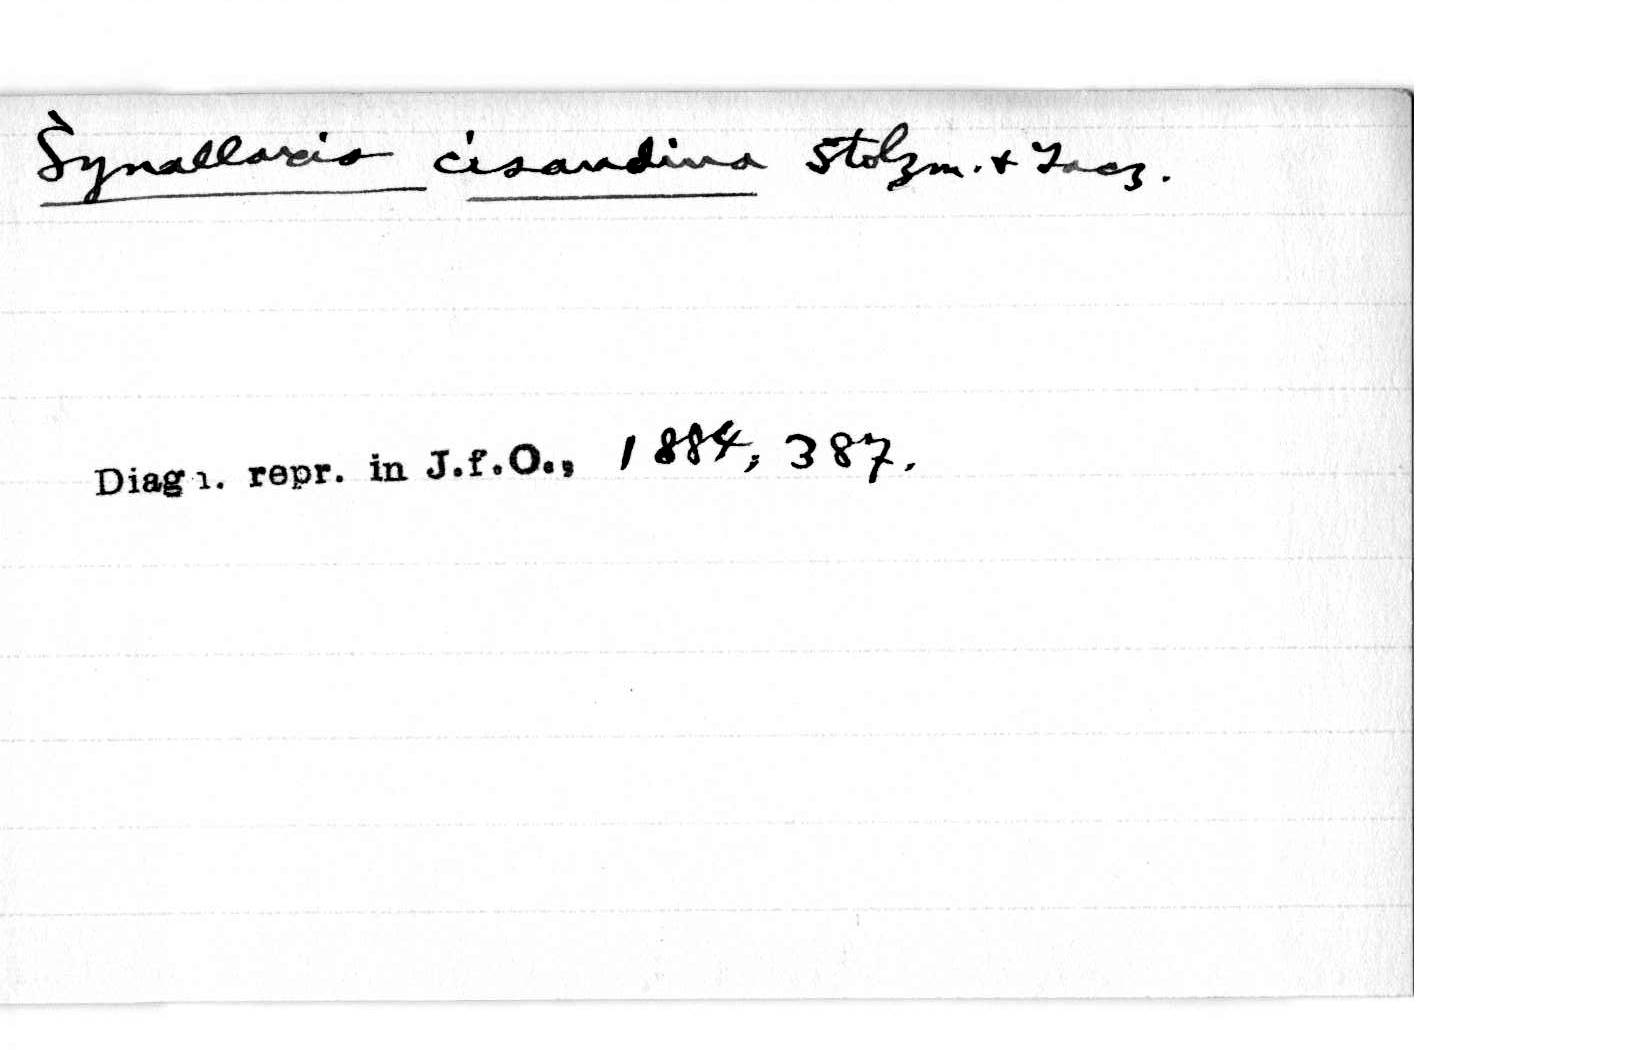 Synallaxis cisandina Stolzm. & Tacz.
Diagn. repr. in J.f.O., 1884, 387.